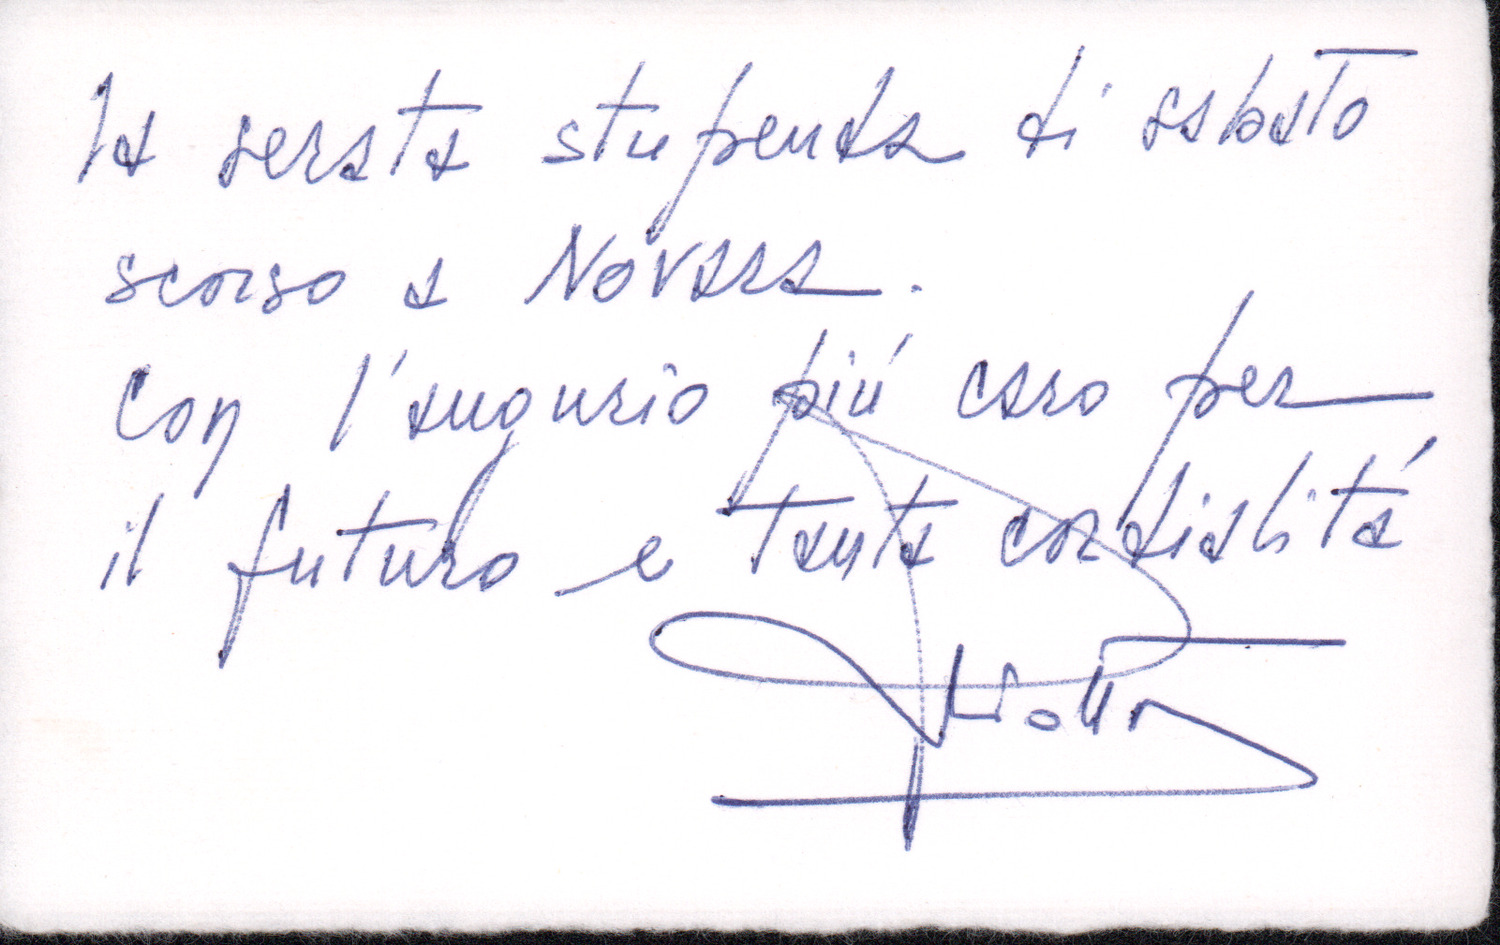 la serata stupenda di sabato
scorso a Novara.
Con l'augurio più caro per
il futuro e tanta cordialità